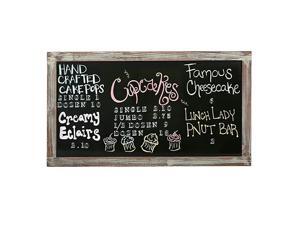 HAND
CRAFTED
CAKE POPS
SINGLE 1
DOZEN 10
Creamy
Eclairs
2.10
Cupcakes
SINGLE 2.10
JUMBO 2.75
1/2 DOZEN 9
DOZEN 16
Famous
Cheesecake
LUNCH LADY
P'NUT BAR